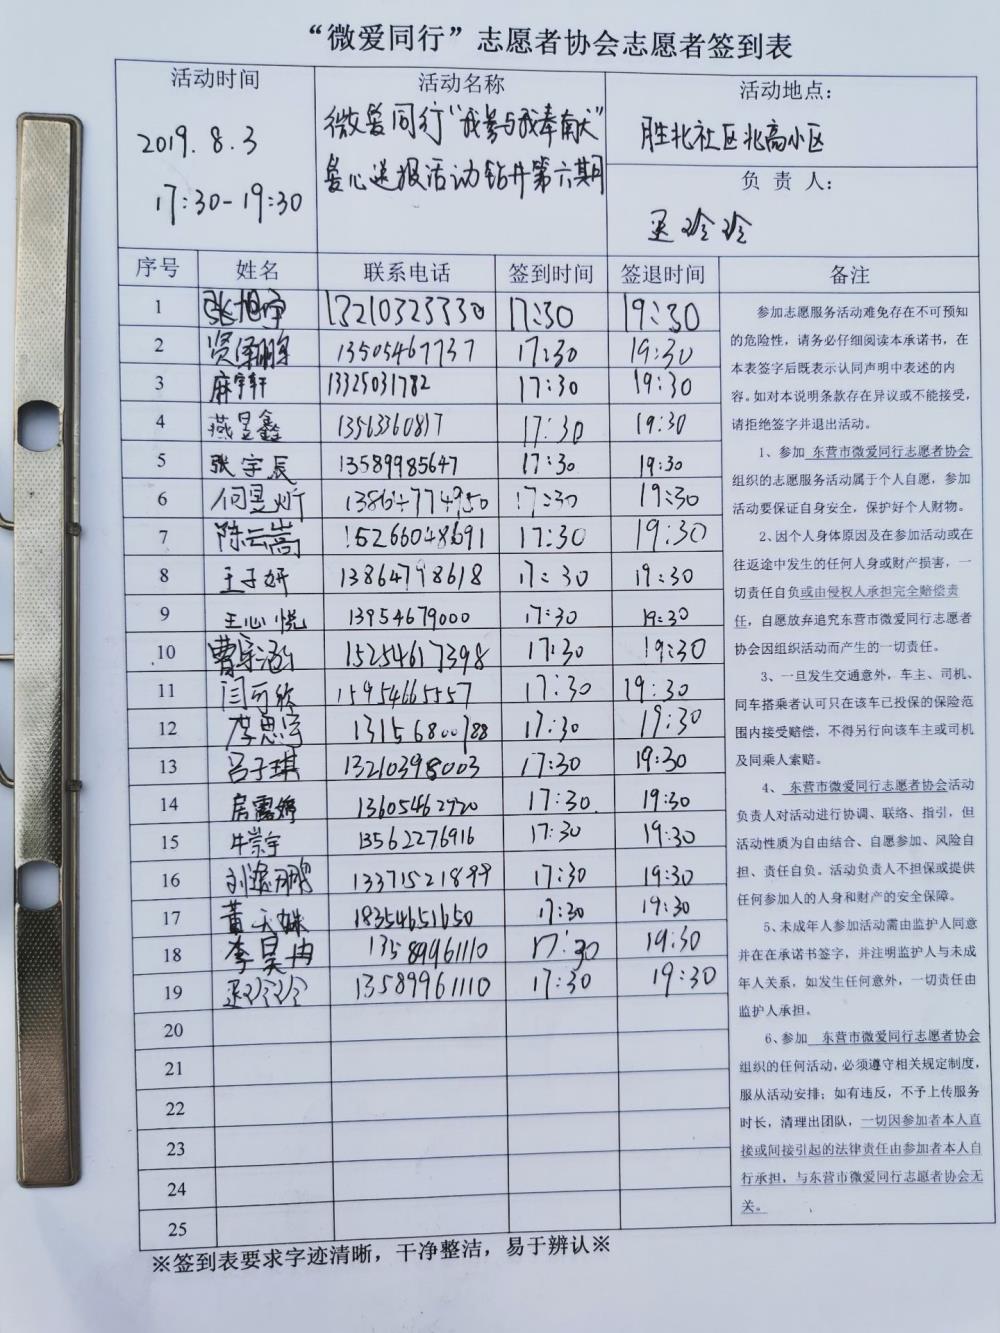 “微爱同行”志愿者协会志愿者签到表
活动时间
2019.8.3
17:30-19:30
活动名称
微爱同行“我参与我奉献”
爱心送报活动钻井第六期
活动地点：
胜北社区北高小区
负 责 人：
玲玲
序号 姓名 联系电话 签到时间 签退时间 备注
1 张旭宇 13210323330 17:30 19:30
2 贤泽鹏 13505467737 17:30 19:30
3 麻宇轩 13325031782 17:30 19:30
4 燕昱鑫 13563360817 17:30 19:30
5 张宇辰 13589985647 17:30 19:30
6 何昱炘 13864774950 17:30 19:30
7 陈云嵩 15266048691 17:30 19:30
8 王子妍 13864798618 17:30 19:30
9 王心悦 13954679000 17:30 19:30
10 曹 15254617398 17:30 19:30
11 闫可欣 15954665557 17:30 19:30
12 李思宇 13156800788 17:30 19:30
13 吕子琪 13210398003 17:30 19:30
14 房露婷 13605462720 17:30 19:30
15 牛崇宇 13562276916 17:30 19:30
16 刘逸鹏 13371521899 17:30 19:30
17 黄天姝 18354651650 17:30 19:30
18 李昊冉 13589961110 17:30 19:30
19 玲玲 13589961110 17:30 19:30
20
21
22
23
24
25
参加志愿服务活动难免存在不可预知
的危险性，请务必仔细阅读本承诺书，在
本表签字后既表示认同声明中表述的内
容。如对本说明条款存在异议或不能接受，
请拒绝签字并退出活动。
1、参加 东营市微爱同行志愿者协会
组织的志愿服务活动属于个人自愿，参加
活动要保证自身安全，保护好个人财物。
2、因个人身体原因及在参加活动或在
往返途中发生的任何人身或财产损害，一
切责任自负或由侵权人承担完全赔偿责
任，自愿放弃追究东营市微爱同行志愿者
协会因组织活动而产生的一切责任。
3、一旦发生交通意外，车主、司机、
同车搭乘者认可只在该车已投保的保险范
围内接受赔偿，不得另行向该车主或司机
及同乘人索赔。
4、 东营市微爱同行志愿者协会活动
负责人对活动进行协调、联络、指引，但
活动性质为自由结合、自愿参加、风险自
担、责任自负。活动负责人不担保或提供
任何参加人的人身和财产的安全保障。
5、未成年人参加活动需由监护人同意
并在在承诺书签字，并注明监护人与未成
年人关系，如发生任何意外，一切责任由
监护人承担。
6、参加 东营市微爱同行志愿者协会
组织的任何活动，必须遵守相关规定制度，
服从活动安排；如有违反，不予上传服务
时长，清理出团队，一切因参加者本人直
接或间接引起的法律责任由参加者本人自
行承担，与东营市微爱同行志愿者协会无
关。
※签到表要求字迹清晰，干净整洁，易于辨认※